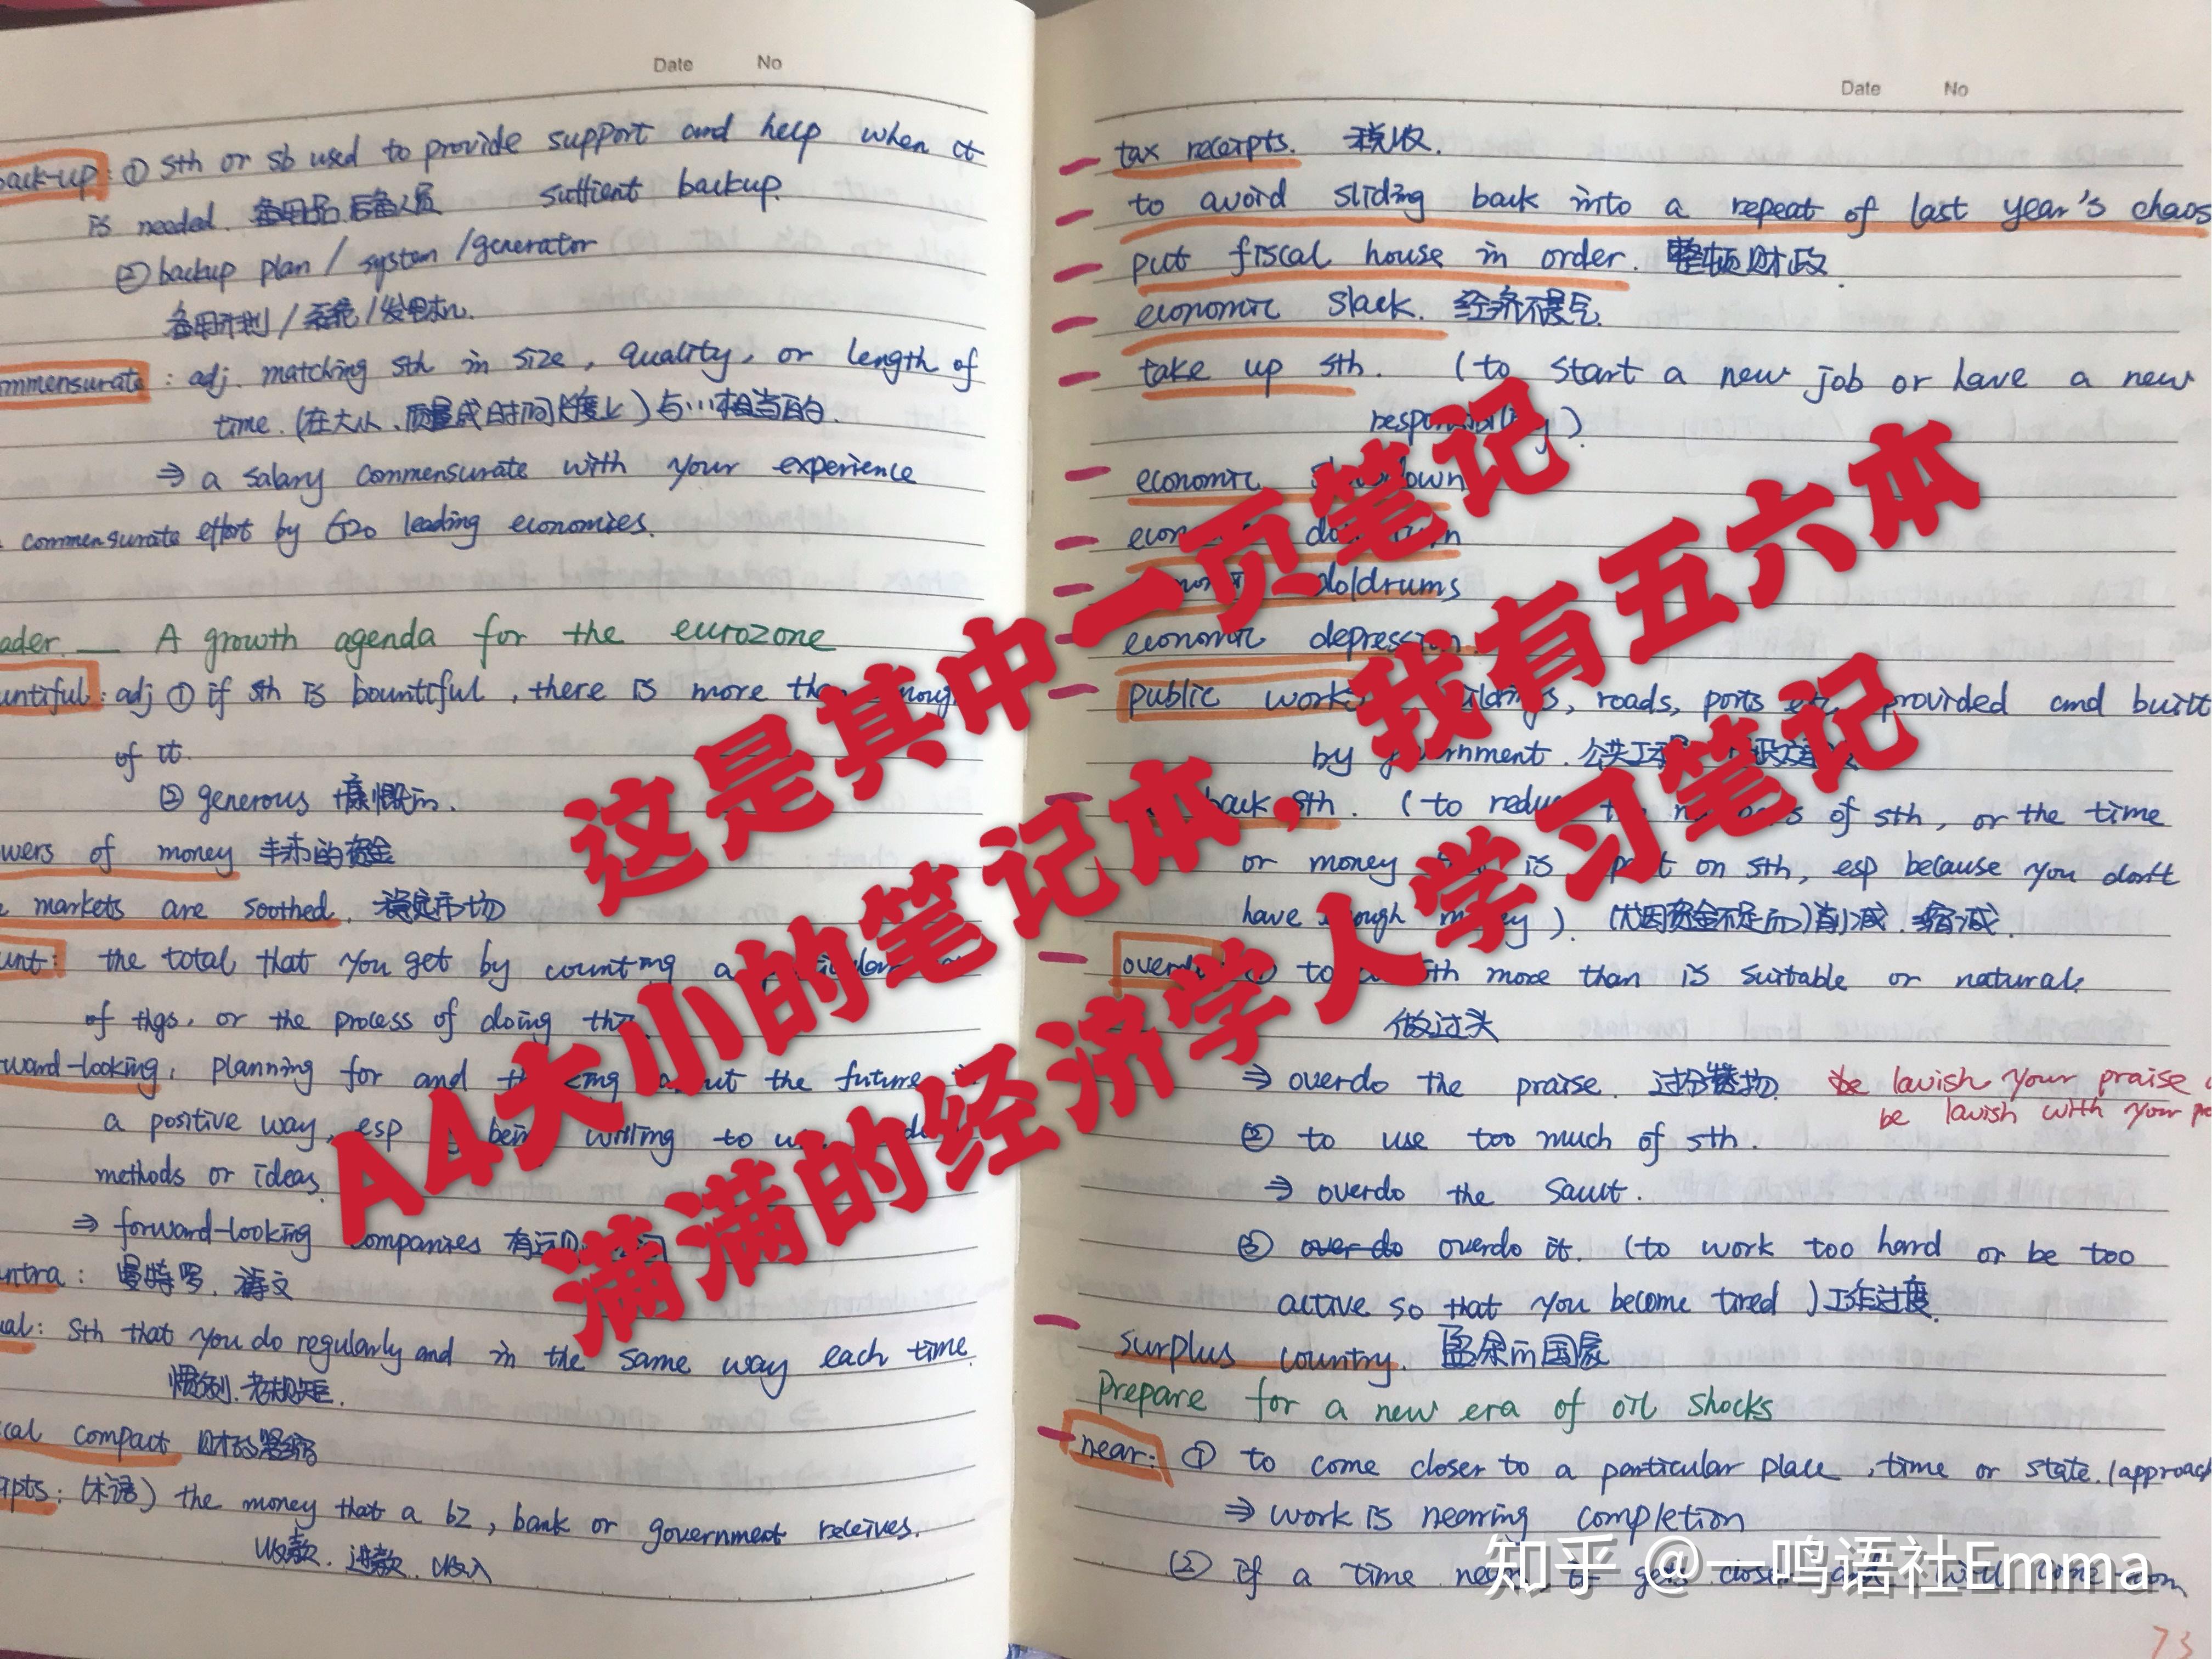 Date No
back-up: ① sth or sb used to provide support and help when it
is needed. 备用品.后备人员 suffient backup.
② backup plan / system /generator
备用计划 / 系统 /发电机.
mmensurate : adj. matching sth in size, quality, or length of
time.(在大小、质量或时间长度上)与…相当的.
⇒ a salary commensurate with your experience
commensurate effort by G20 leading economies.
ader. — A growth agenda for the eurozone
untiful : adj ① if sth is bountiful , there is more than
of it.
② generous 慷慨的.
wers of money 丰沛的资金
markets are soothed. 稳定市场
unt: the total that you get by counting a
of thgs, or the process of doing
ward-looking, planning for and the future
a positive way, esp being willing to
methods or ideas.
⇒ forward-looking companies
ntra : 曼特罗. 祷文
ual: sth that you do regularly and in the same way each time.
惯例.老规矩.
cal compact 财政紧缩
ipts: (术语) the money that a bz, bank or government receives.
收款. 进款. 收入
Date No
tax receipts. 税收.
to avoid sliding back into a repeat of last year's chaos
put fiscal house in order. 整顿财政.
economic slack. 经济不景气.
take up sth. (to start a new job or have a new
responsibility).
economic
doldrums
economic depression.
public works buildings, roads, ports etc, provided and built
by government.
back sth. (to reduce the of sth, or the time
or money is on sth, esp because you don't
have enough money). (尤因资金不足而)削减.缩减.
overdo sth more than is suitable or natural.
做过头
⇒ overdo the praise. be lavish your praise
be lavish with your
② to use too much of sth.
⇒ overdo the sault.
③ over do overdo it. (to work too hard or be too
active so that you become tired )工作过度.
surplus country. 盈余的国家
Prepare for a new era of oil shocks
near: ① to come closer to a particular place , time or state. (approach
⇒ work is nearing completion
② if a time
73
这是其中一页笔记
A4大小的笔记本，我有五六本
满满的经济学人学习笔记
知乎 @一鸣语社Emma